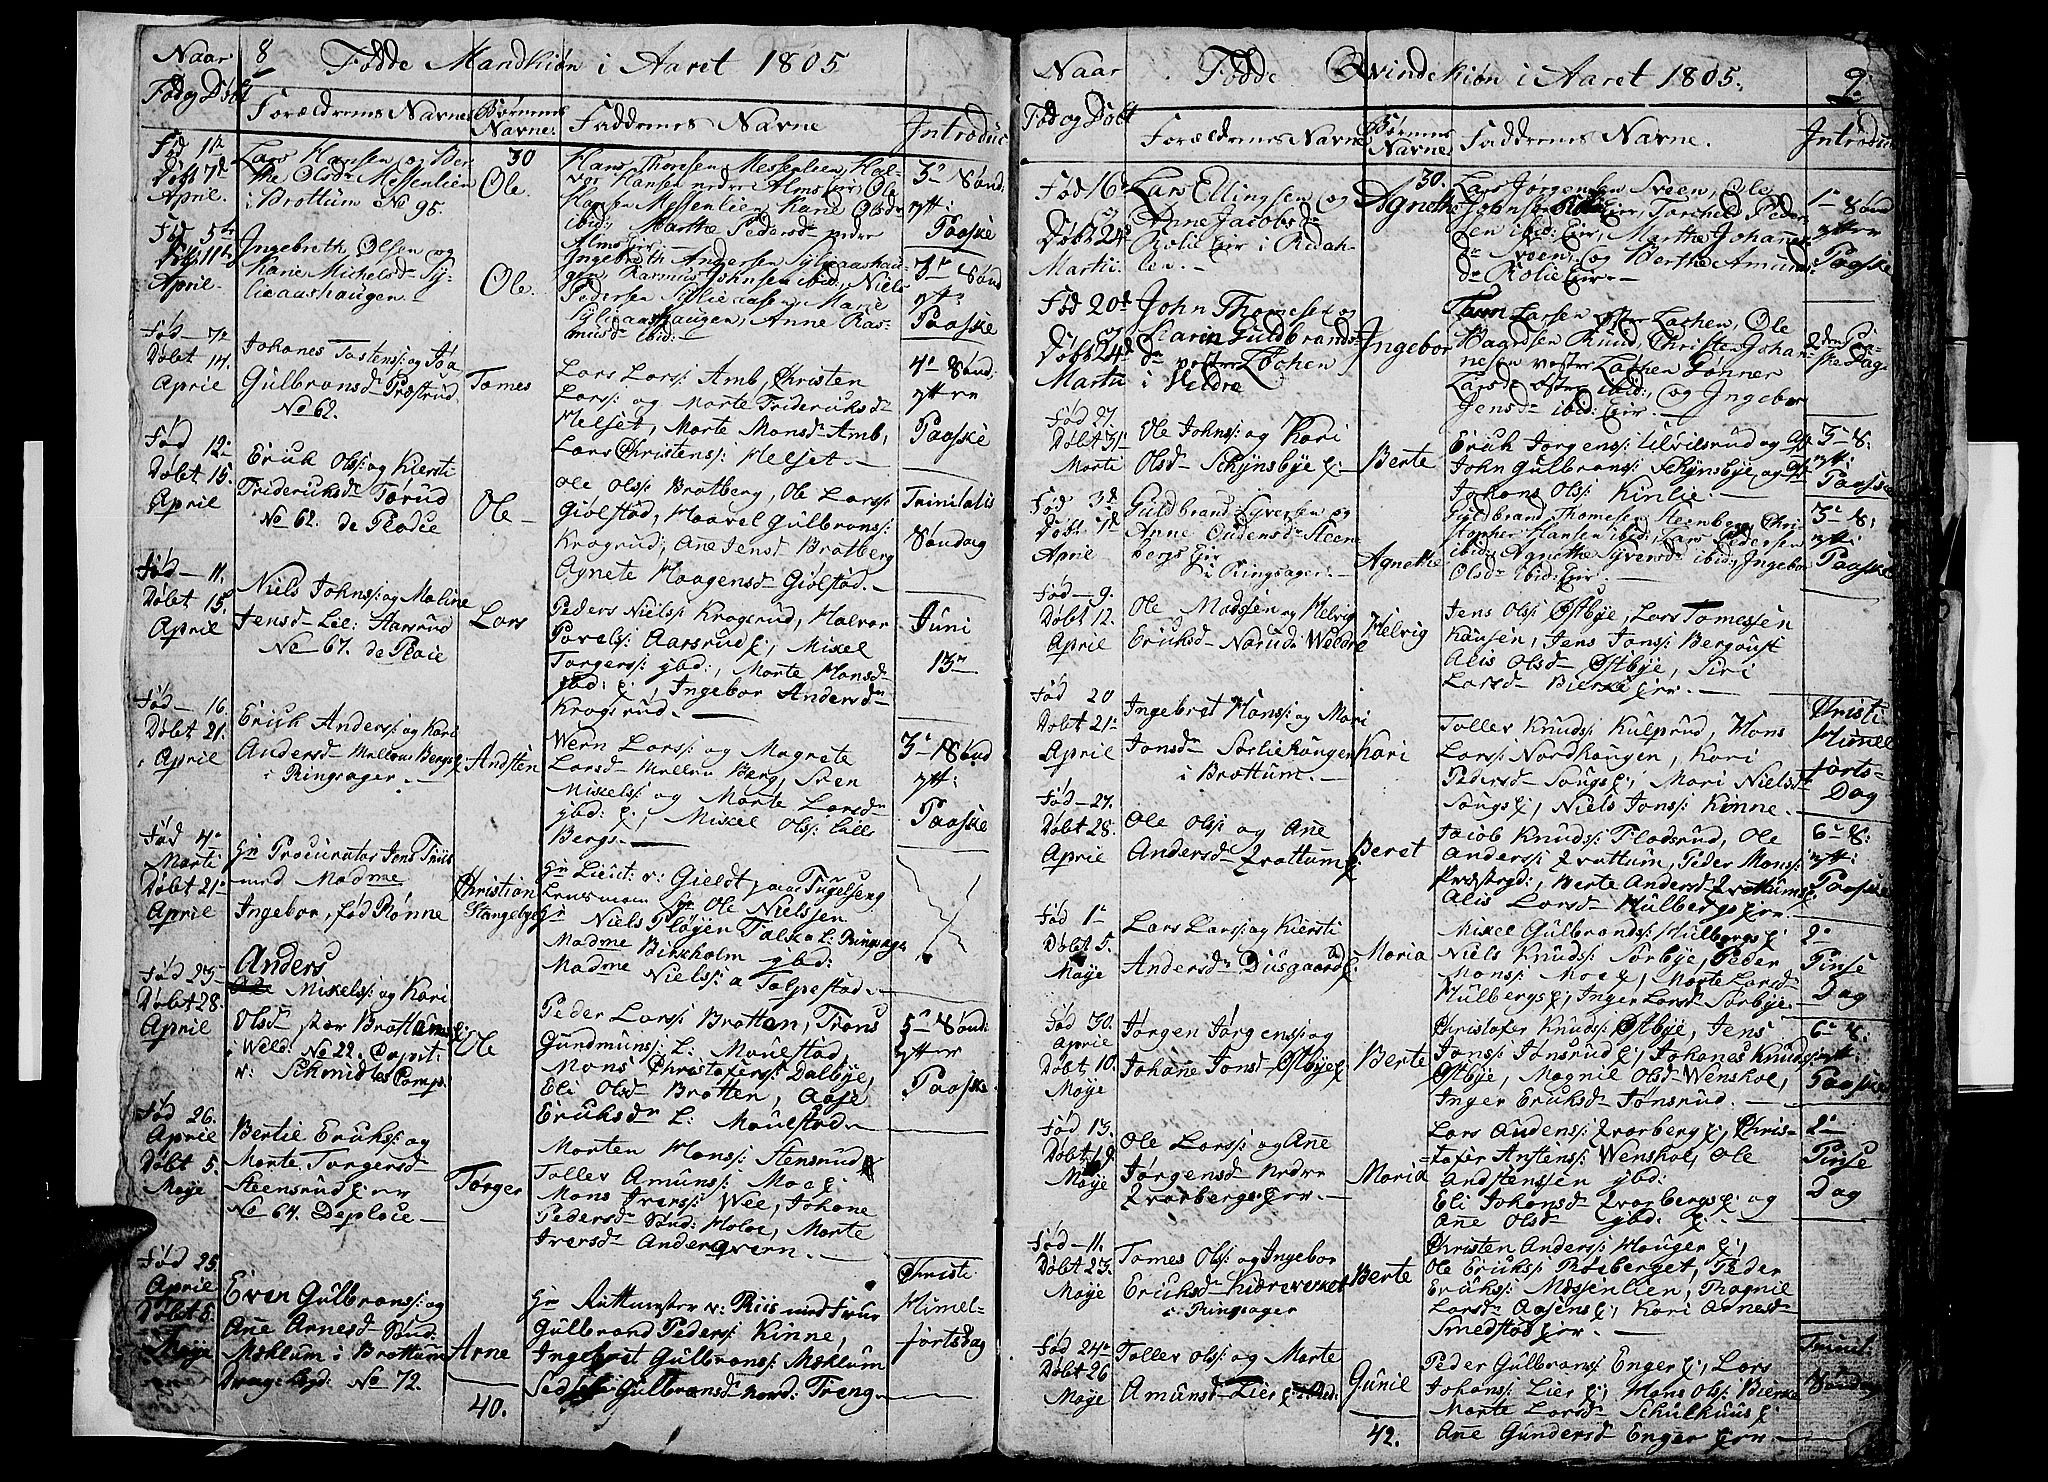 Naar
8
Fødde Mandkiøn i Aaret 1805
Fød og Døbt
Forældrenes Navne
Børnenes Navne.
Faddernes Navne
Introduc
Fød 1te
Døbt 7d
April.
Lars Hansen og Ber
the Olsdr Messenlien
i Brottum No 95.
30
Ole
Hans Thoresen Messenlien, Hal-
vor Hansen nedre Almseier, Ole
Hansen Messenlien, Karie Olsdr
ibid; Marthe Pedersdr nedre
Almseier.
3e Sønd:
ytt:
Paaske
Fød 5te
Døbt 11te
April.
Ingebreth Olsen og
Karie Michelsdr Sy-
lieaashaugen.
Ole.
Ingebreth Andersen Sylieaashau-
gen, Rasmus Johnsen ibid, Niels
Pedersen Sylieaasen, Marie
Sylieaashaugen, Anne Ras-
musdr ibid:
3e Sønd
ytr
Paaske
Fød 7de
Døbt 14.
April
Johanes Tostens: og Jøa
Gulbransdr Præstrud
No 62.
Tomes
Lars Lars: Amb, Christen
Lars: og Marte Frideriksdr
Helset, Marte Monsdr Amb,
Lars Christens: Helset.
4e Sønd:
ytter
Paaske
Fød 12te
Døbt 15.
April
Erich Ols: og Kiersti
Frideriksdr Torud
No 62. de Placie
Ole
Ole Ols: Brotberg, Ole Lars:
Giølstad, Haavel Gulbrans:
Krogrud, Ane Jensdr Brotberg
Agnete Haagensdr Giølstad.
Trinitatis
Søndag
Fød 11.
Døbt 15.
April
Niels Johns: og Maline
Jensdr Lie: Aarsrud
No 67. de Placie
Lars
Peders Niels: Krogsrud, Halvor
Povels: Aarsrud, Mikel
Torgers: ybd:, Marte Hansdr
ybd: Ingebor Andersdr
Krogsrud.
Juni
13
Fød 16.
Døbt 21.
April
Erich Anders: og Kari
Andersdr Mellem Bergs
i Ringsager.
Andsten
Wern Lars: og Magnete
Larsdr Mellem Berg, Sven
Mikels: og Marte Larsdr
ybd:, Mikel Ols: Lille
Bergs
3e Sønd
ytt:
Paaske
Fød 4e
Marti
Døbt 21
April
Hr Procurator Jens Friis
med Madme
Ingebor, fød Rønne
Christian
Stangebye
Hr Lieut: v: Gieldt,
Lensmam Ole Nielssen
Hr Niels Pløyen Talsta i Ringsager
Madme Birkholm ybd:
Madme Niels: a Talpestad.
Fød 23
Døbt 28.
April
Anders
Mikels: og Kari
Olsdr stør Brotten
i Weld: No 22. Capit:
v: Schmidtes Comp:
Ole
Peder Lars: Brotten, Trons
Gundmuns: L: Mouestad,
Mons Christofers: Dalbye,
Eli Olsdr Brotten, Aase
Eriksdr L: Mouestad.
5e Sønd:
ytter
Paaske
Fød 26.
April
Døbt 5.
Maye
Bertie Eriks: og
Marte Torgersdr
Steensrud
No 64. Deplace
Torger
Morten Hans: Stensrud
Toller Amuns: Moe
Mons Ivers: Wee, Johane
Pedersdr Sund: Hole, Marte
Iversdr Anderqvern.
Fød 25.
April
Døbt 5.
Maye
Even Gulbrans: og
Ane Arnesdr
Mæklum i Brottum
No 72.
Arne
Hr Rittmester v: Riis med Frue
Gulbrand Peders: Kinne,
Ingebret Gulbrans: Mæklum
Gulbransdr nord: Freng
Christi
Himel-
fartsdag
40.
Naar
Fødde Qvindekiøn i Aaret 1805.
9.
Fød og Døbt
Forældrenes Navne
Børnenes Navne
Faddrenes Navne.
Introduc
Fød 16de
Døbt 24d
Martii.
Lars Ellingsen og
Anne Jacobsdr
Rolieeier i Ridah-
len.
30.
Agnethe
Lars Jørgensen Sveen, Ole
Johnsen Rolieeier, Torchel Peder
sen ibid: Eier, Marthe Johannes
dr Sveen, og Berthe Amuns
dr Rolieeier.
1e Sønd
ytter
Paaske
Fød 20d
Døbt 24d
Martii
John Thomesen og
Karin Guldbrands-
dr vester Løchen
i Veldre
Ingebor
Larsen øster Løchen, Ole
Haagensen Rind, Christen Johan
nesen vester Løchen Gønner
Larsdr øster ibid:, og Ingebor
Jensdr ibid: Eier.
2den Pa-
ske Dag
Fød 27.
Døbt 31.
Marte
Ole Johns: og Kari
Olsdr Schynsbye
Berte
Erich Jorgens: Ulvilsrud og
John Gulbrans: Schynsbye og
Johans Ols: Kinlie.
3e S:
ytt:
Paaske
Fød 3d
Døbt
April
Guldbrand Syversen og
Anne Oudensdr Steen-
bergs Eier
i Ringsager.
Agnethe
Guldbrand Thomesen Steenberg, Chri-
stopher Hansen ibid, Lars Pedersen
ibid: Agnethe Syvensdr ibid:, Ingebor
Olsdr ibid: Eier.
3e S:
ytt:
Paaske
Fød 9.
Døbt 12.
April
Ole Madssen og Helvig
Eriksdr Narud: Weldre
Helvig
Jens Ols: Østbye, Lars Tomessen
Kausen, Jens Jons: Bergoust
Alis Olsdr Østbye, Siri
Larsdr Bierke Eier.
Fød 20
Døbt 21.
April
Ingebret Hans: og Mari
Jonsdr Sorliehaugen
i Brottum.
Kari
Toller Knuds: Kulprud, Hans
Lars: Nordhaugen, Kari
Pedersdr Saugs, Mari Nielsdr
Saugs, Niels Jons: Kinne.
Christi
Himel
farts-
Dag
Fød 27.
Døbt 28.
April
Ole Ols: og Ane
Andersdr Qvattum
Beret
Jacob Knuds: Flodsrud, Ole
Anders: Qvattum, Peder Mons:
Præstryd:, Berte Andersdr Qvattums
Alis Larsdr Hulbergs Eier.
6e S:
ytt:
Paaske
Fød 1e
Døbt 5.
Maye
Lars Lars: og Kiersti
Andersdr Diisgaard
Maria
Mikel Gulbrands: Hulbergs
Niels Knuds: Sorbye, Peder
Mons: Moe, Marte Larsdr
Hulbergs, Inger Larsdr Sorbye
2e
Pinse
Dag
Fød 30.
April
Døbt 10.
Maye
Jørgen Jørgens: og
Johane Jonsdr Østbye
Berte
Christofer Knuds: Østbye, Jens
Jons: Jønsrud, Johanes Knuds:
Østbye, Magnil Olsdr Wenshol,
Inger Eriksdr Jonsrud.
6e S:
ytt
Paaske
Fød 13.
Døbt 19
Maye
Ole Lars: og Ane
Jørgensdr Nedre
Qvarbergs Eier.
Maria
Lars Audens: Qvarberg, Chris-
tofer Anstens: Wenshol, Ole
Andstenssen ybd:
Eli Johansdr Qvarbergs og
Ane Olsdr ybd:
2e
Pinse
Dag
Fød 11.
Døbt 23.
Maye
Tomes Ols: og Ingebor
Eriksdr Kiærevecket
i Ringsager
Berte
Christen Anders: Hauger,
Ole Eriks: Røseberget, Peder
Eriks: Messenlien, Ragnil
Larsdr Aasens, Kari Arnesdr
Smedstadeier.
Fød 24de
Døbt 26
Maye
Toller Ols: og Marte
Amunsdr Lier
Gunil
Peder Gulbrans: Enger, Lars
Johans: Lier, Hans Ols: Bierke
Marte Larsdr Schulhuus
Ane Gundersdr Enger Eier.
Trinit:
Søndag
42.